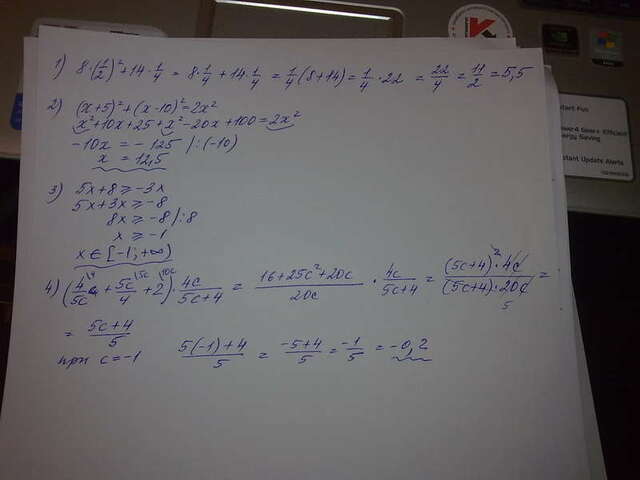 1) 8·(1/2)²+14·1/4 = 8·1/4+14·1/4 = 1/4(8+14)=1/4·22 = 22/4 = 11/2 = 5,5
2) (x+5)²+(x-10)²=2x²
x²+10x+25+x²-20x+100=2x²
-10x = -125 |:(-10)
x = 12,5
3) 5x+8 ≥ -3x
5x+3x ≥ -8
8x ≥ -8 /:8
x ≥ -1
x ∈ [-1; +∞)
4) (4/5c + 5c/4 + 2)·4c/5c+4 = 16+25c²+20c/20c · 4c/5c+4 = (5c+4)²·4c/(5c+4)·20c =
5
= 5c+4/5
при c=-1 5(-1)+4/5 = -5+4/5 = -1/5 = -0,2
K
NVIDIA
Energy Saving
Instant Update Alerts